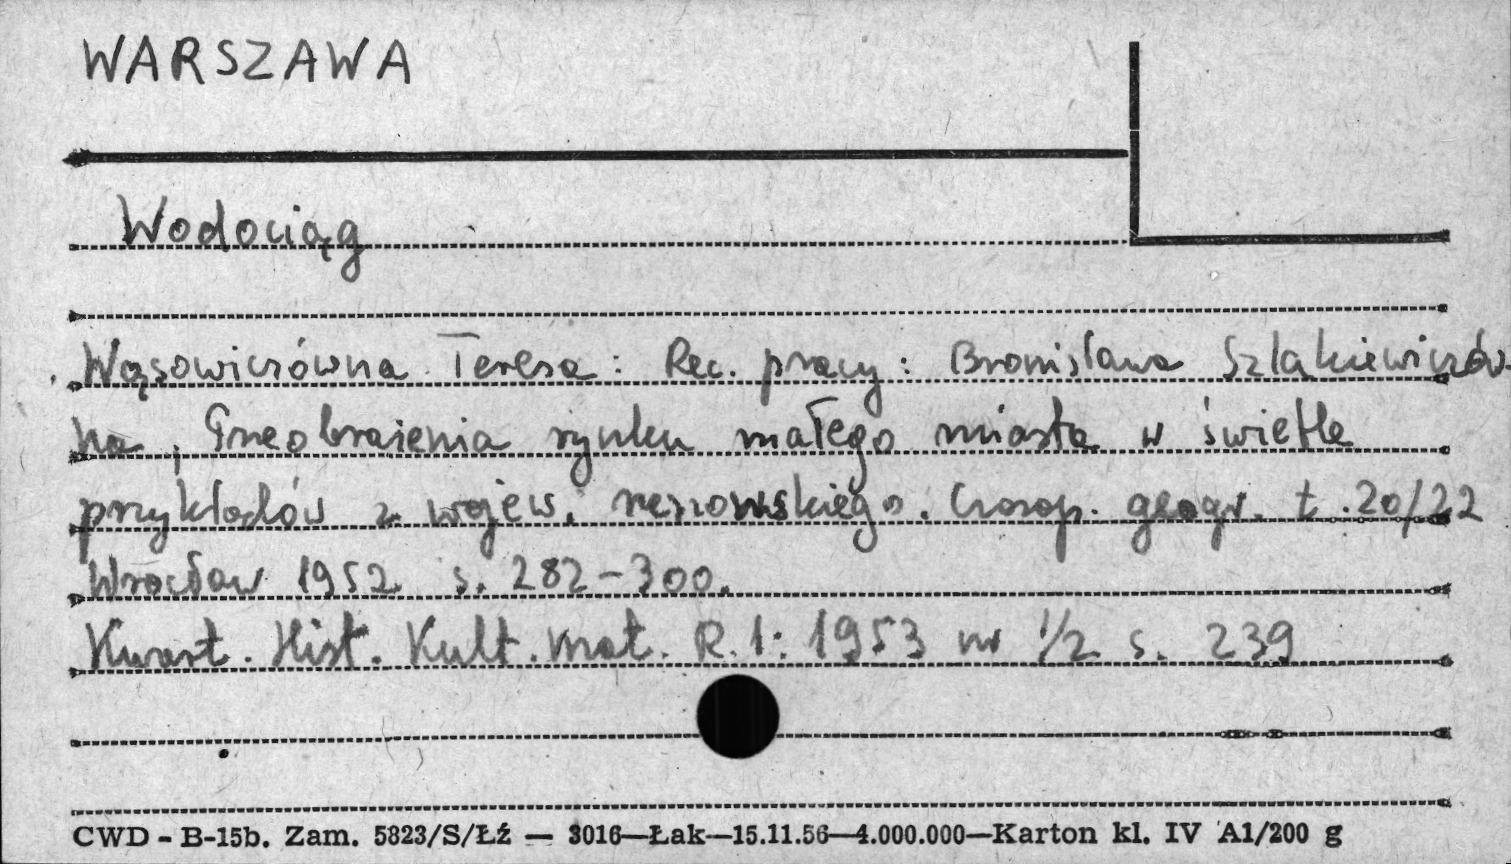 WARSZAWA
Wodociąg
Wąsowiczówna Teresa: Rec. pracy: Bronisława Szlakiewiczów-
na, Przeobrażenia rynku małego miasta w świetle
przykładów z wojew. rzeszowskiego. Czasop. geogr. t. 20/22
Wrocław 1952 s. 282-300.
Kwart. Hist. Kult. mat. R. 1: 1953 nr 1/2 s. 239
CWD - B-15b. Zam. 5823/S/Łź — 3016—Łak—15.11.56—4.000.000—Karton kl. IV A1/200 g